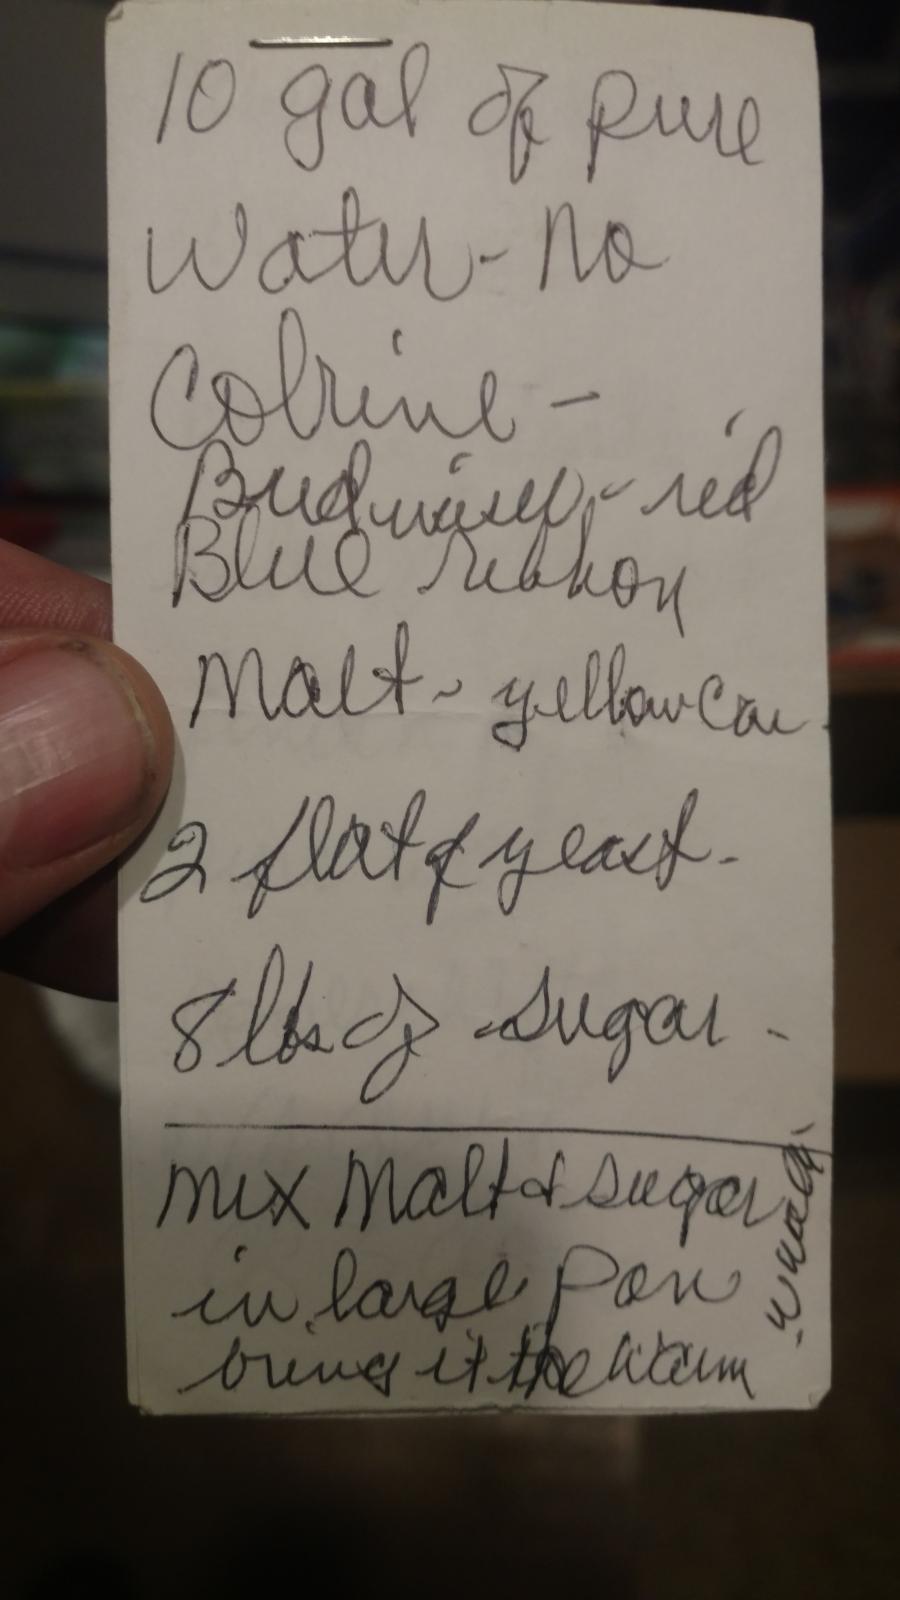 10 gal of pure
Water - No
Colrine -
Budwiser - red
Blue ribbon
Malt - yellow Can
2 flat of yeast -
8 lbs of sugar -
mix Malt & sugar
in large Pan
bring it to warm